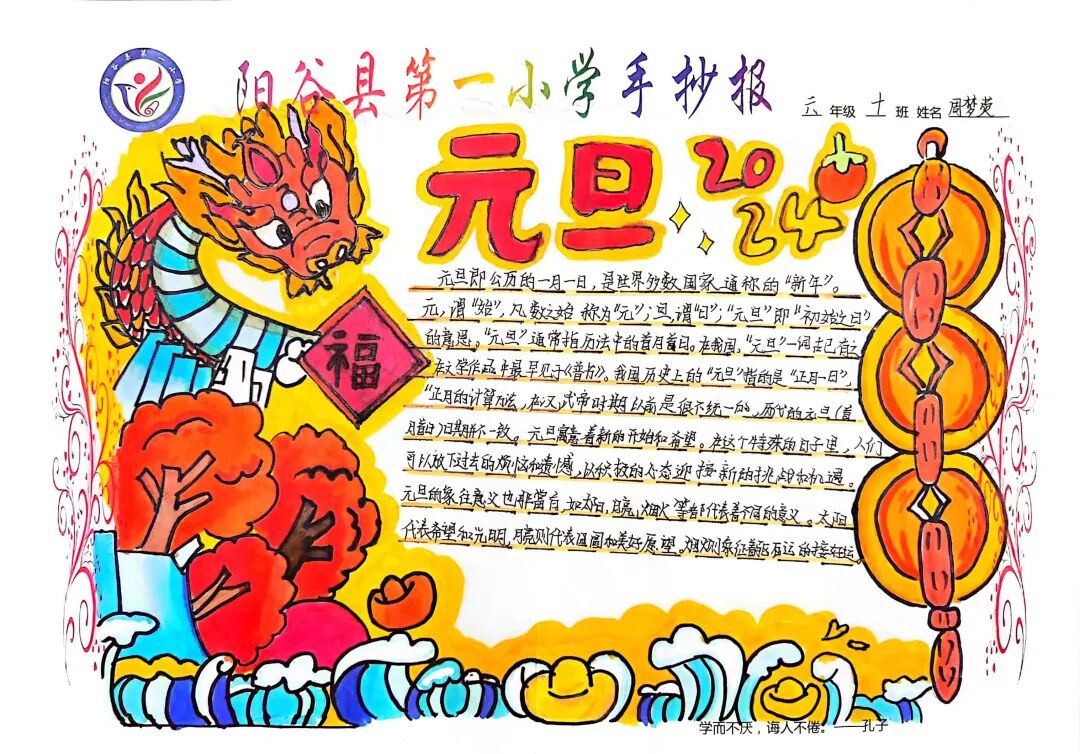 阳谷县第一小学
阳谷县第一小学手抄报
六 年级 十 班 姓名 周梦荧
元旦
2024
福
元旦即公历的一月一日，是世界多数国家通称的“新年”。
元，谓“始”，凡数之始称为“元”；旦，谓“日”；“元旦”即“初始之日”
的意思。“元旦”通常指历法中的首月首日。在我国，“元旦”一词古已有之
在文学作品中最早见于《晋书》。我国历史上的“元旦”指的是“正月一日”，
“正月的计算方法，在汉武帝时期以前是很不统一的，历代的元旦（首
月首日）日期并不一致。元旦寓意着新的开始和希望。在这个特殊的日子里，人们
可以放下过去的烦恼和遗憾，以积极的心态迎接新的挑战和机遇。
元旦的象征意义也非常有，如太阳，月亮，烟火等都代表着不同的意义。太阳
代表希望和光明，月亮则代表团圆和美好愿望。烟火则象征着
学而不厌，诲人不倦。——孔子